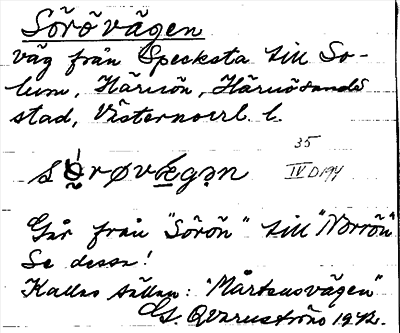 Sörövägen
väg från Specksta till So-
lum, Härnön, Härnösands
stad, Västernorrl. l.
35
IV D 194
Går från "Sörön" till "Norrön"
Se dessa!
Kallas sällan: "Mårtensvägen"
G. Qvarnström 1942.